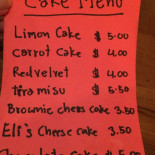 Cake Menu
Limon Cake $ 5.00
Carrot Cake $ 4.00
Red velvet $ 4.00
tiramisu $ 5.50
Brownie chees cake 3.50
Eli's Cheese cake 3.50